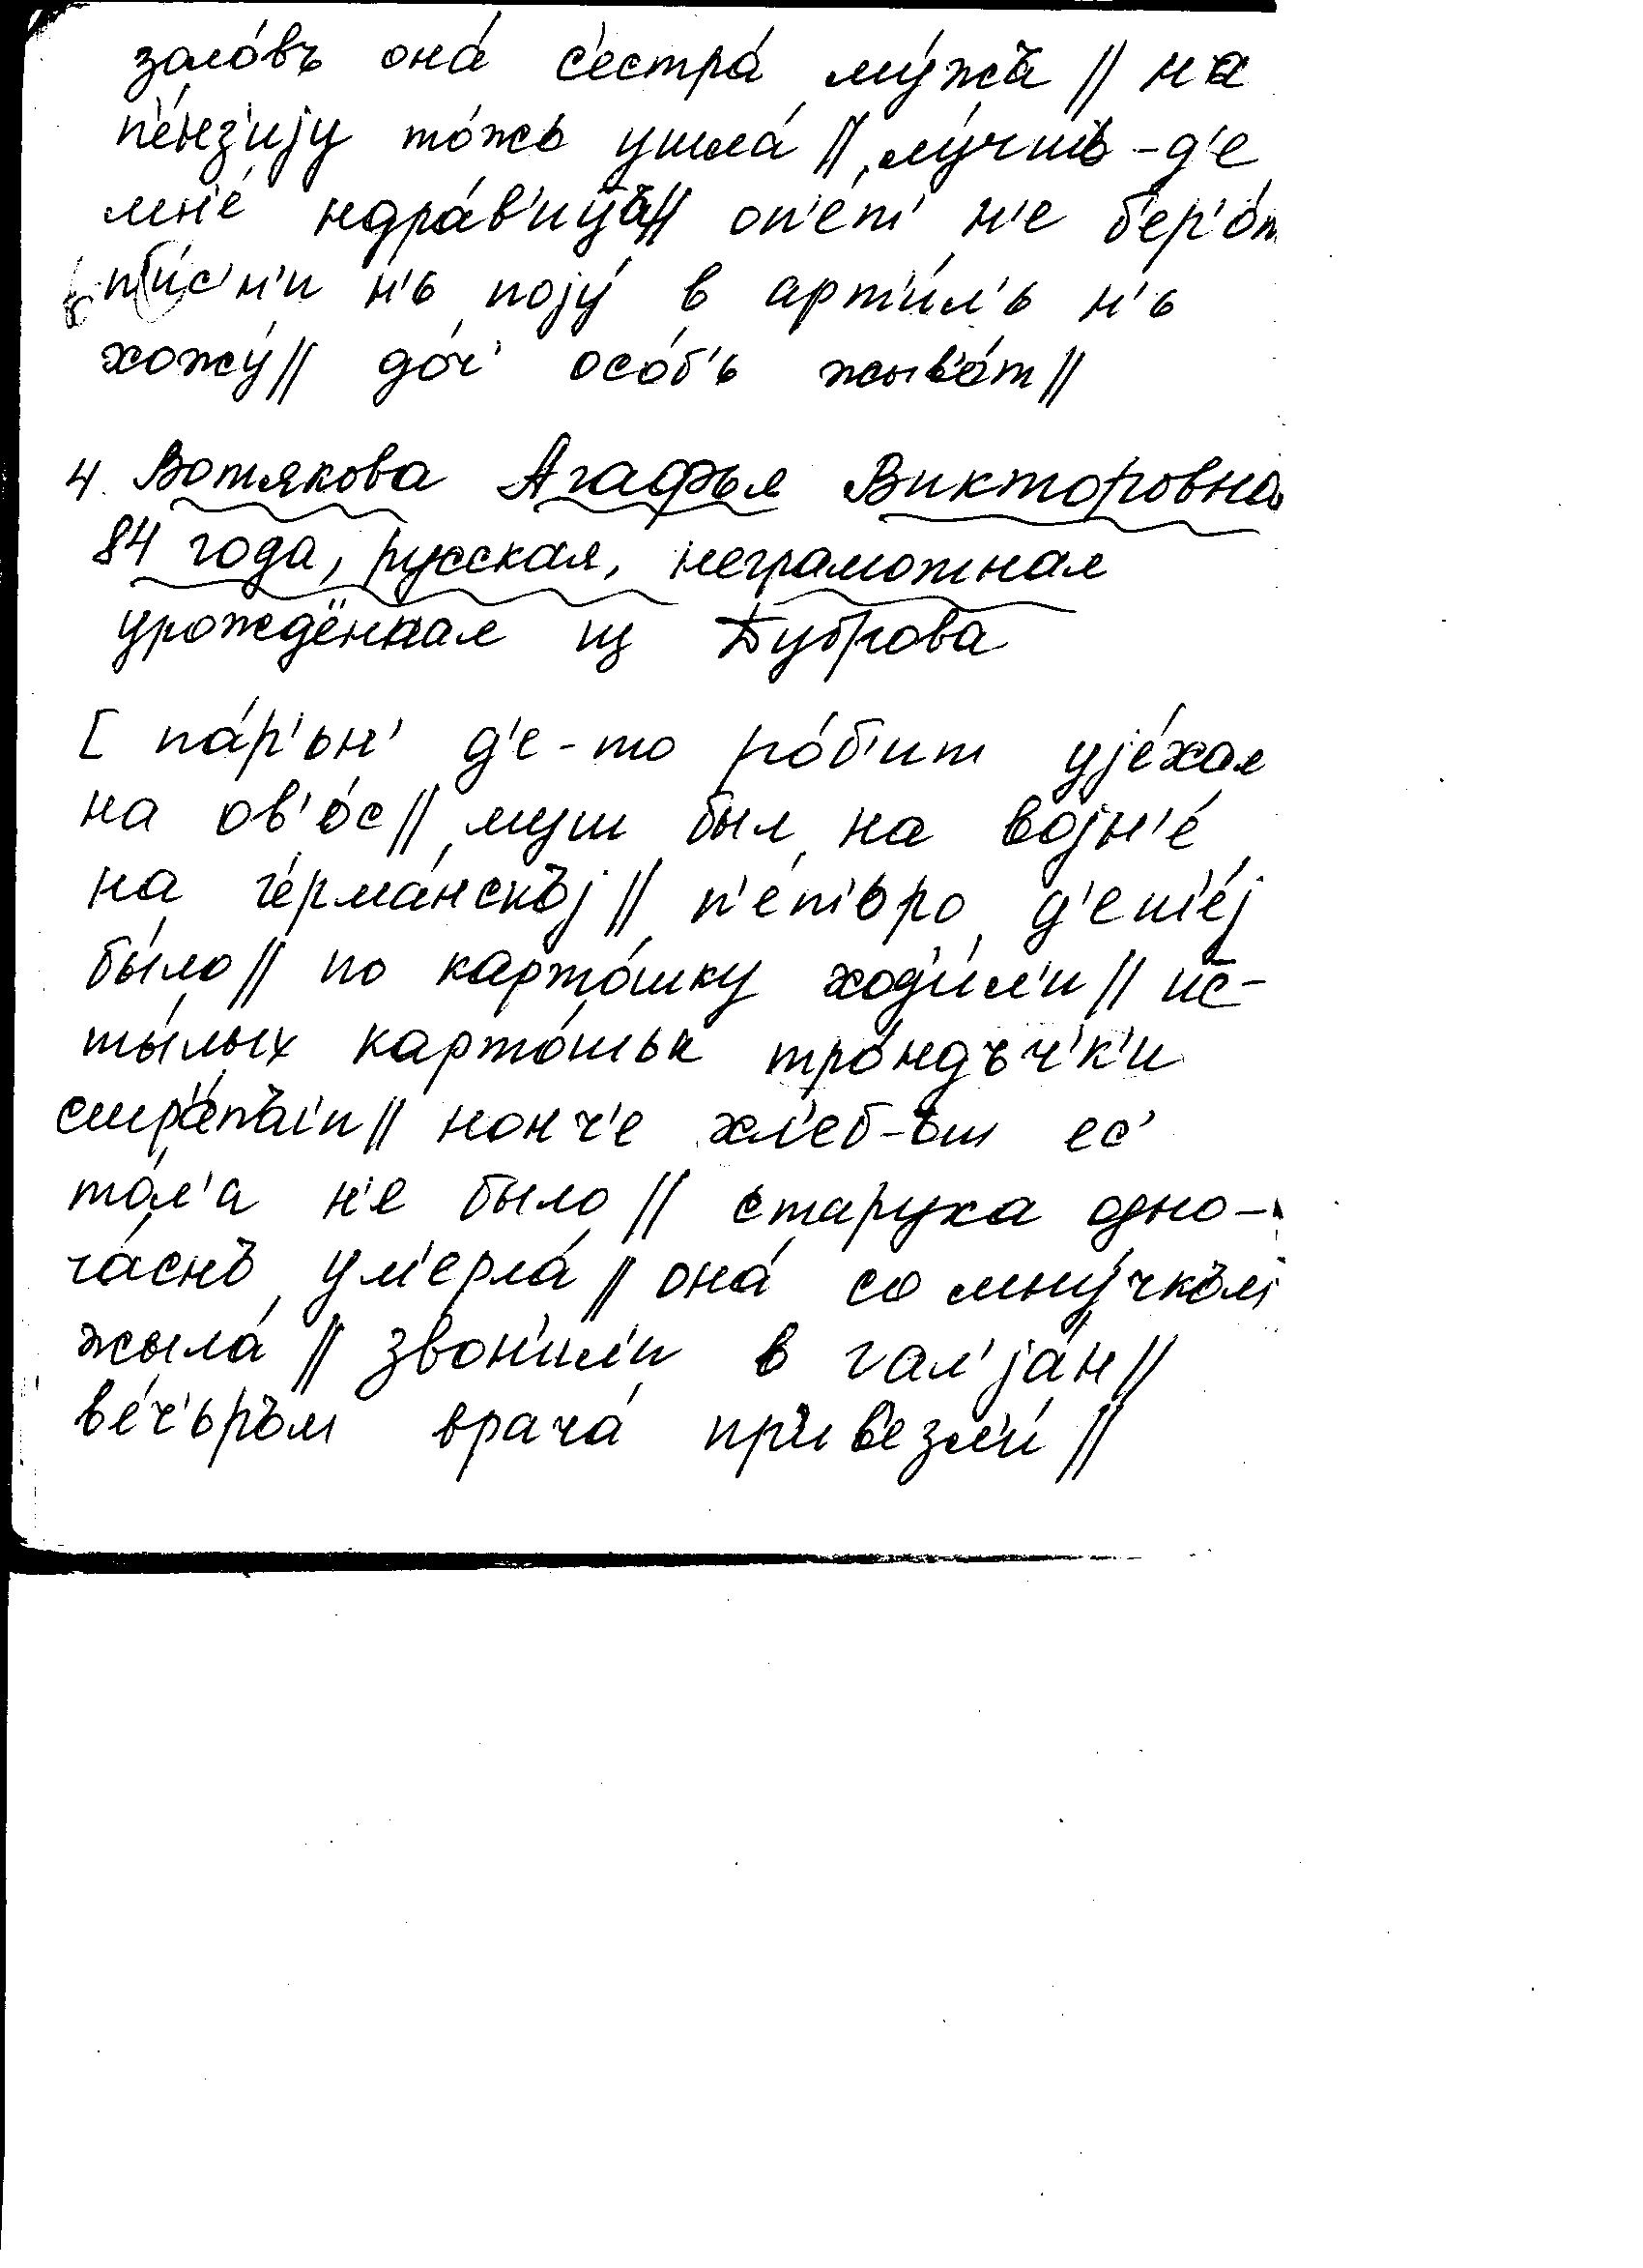 золо́въ она́ с'естра́ му́жъ // на
п'е́нз'ију то́жь ушла́ // лу́чшь-д'е
мн'е́ ндра́в'иц:ъ // оп'е́т' н'е б'ер'о́т
п'и́с'н'и н'ь појý в арт'и́л'ь н'ь
хожу́ // до́ч' осо́б'ь жыв'о́т //
4. Вотякова Агафья Викторовна
84 года, русская, неграмотная
урождённая из Дуброва
[ па́р'ьн' д'е-то ро́б'ит ује́хал
на ов'о́с // муш был на војн'е́
на г'ерма́нскъј // п'е́т'ьро д'ет'е́ј
бы́ло // по карто́шку ход'и́л'и // ис-
ты́лых карто́шьк тро́ндъч'к'и
стр'а́пъл'и // нонч'е хл'еб-ът ес'
то́л'а н'е было // старуха одно-
ча́снъ ум'ерла́ // она́ со мну́чкъј
жыла́ // звон'ил'и в гал'ја́н //
ве́ч'ьръм врача́ пр'ив'езл'и́ //